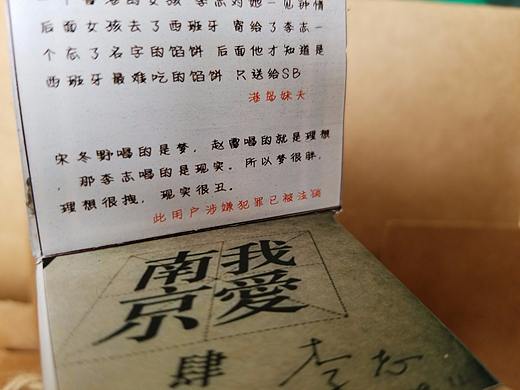 一个香港的女孩 李志对她一见钟情
后面女孩去了西班牙 寄给了李志一
个忘了名字的馅饼 后面他才知道是
西班牙最难吃的馅饼 只送给SB
港岛妹夫
宋冬野唱的是梦，赵雷唱的就是理想
，那李志唱的是现实。所以梦很胖，
理想很拽，现实很丑。
此用户涉嫌犯罪已被注销
我愛
南京
肆
李志